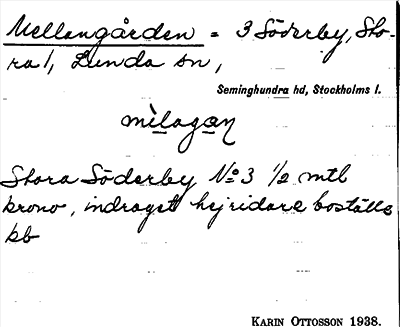 Mellangården = 3 Söderby, Sto-
ra 1, Lunda sn,
Seminghundra hd, Stockholms l.
mèlagan
Stora Söderby No 3 1/2 mtl
krono, indraget hejridare boställe
kb
KARIN OTTOSSON 1938.